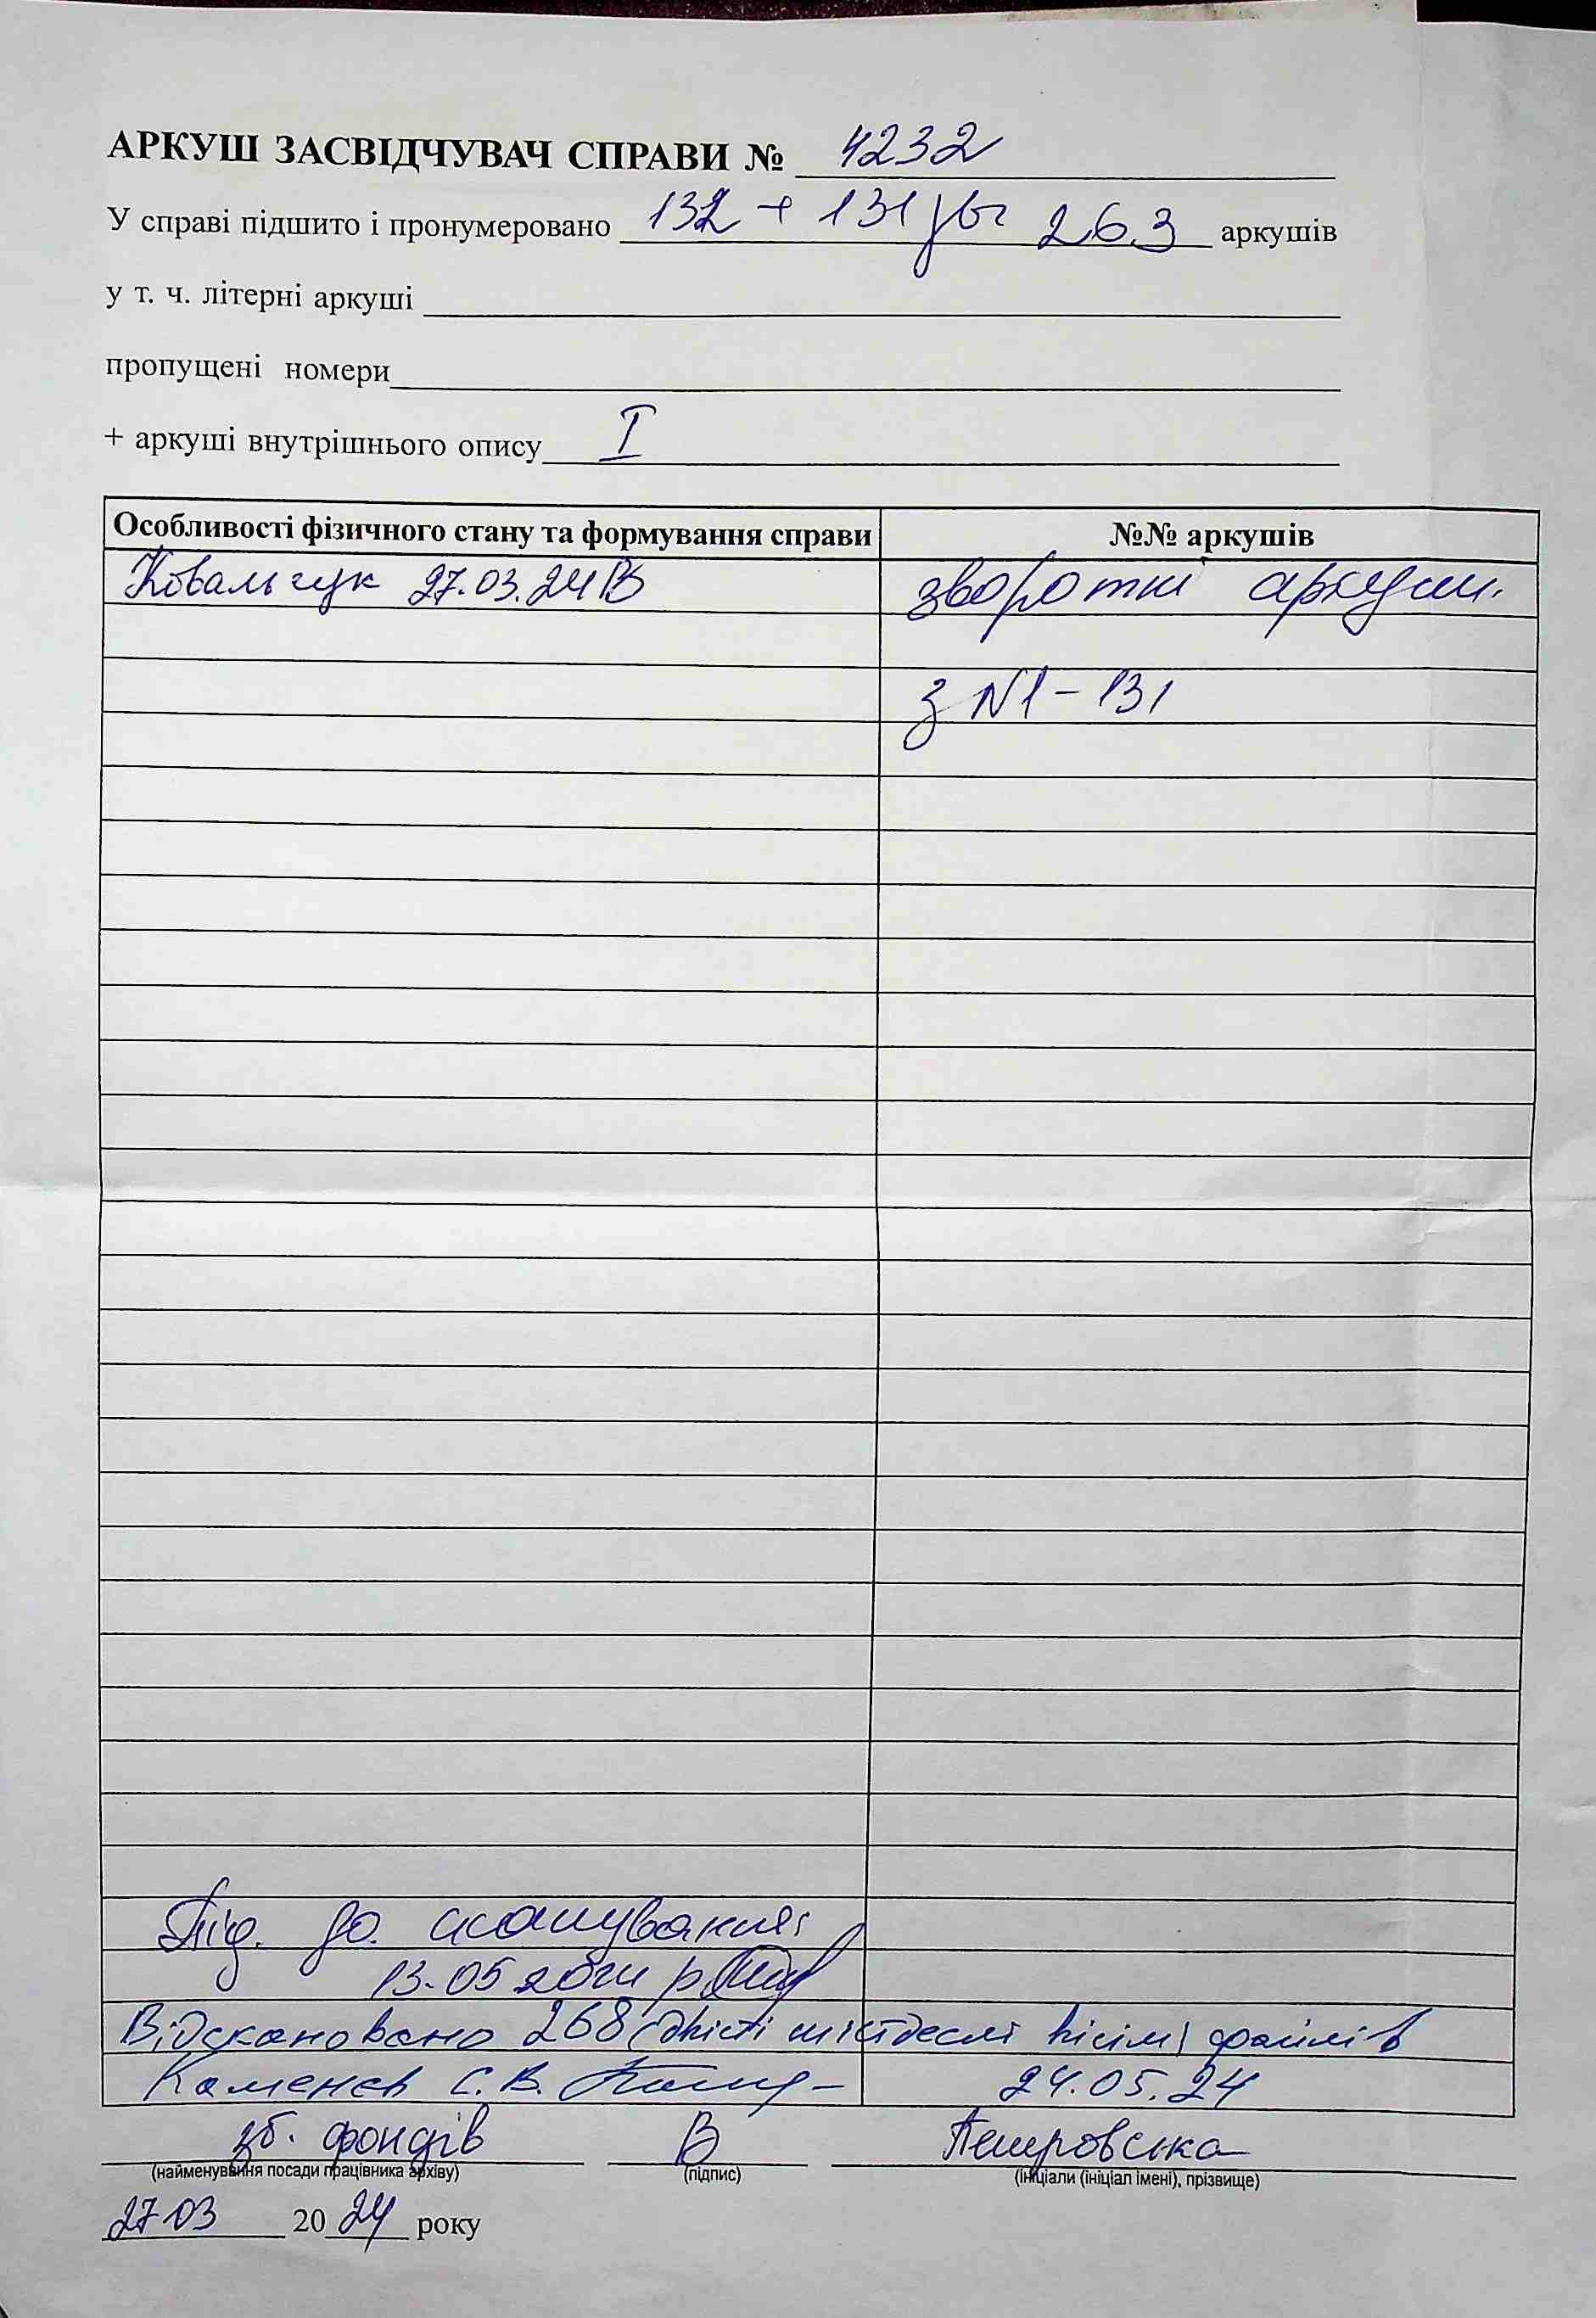 АРКУШ ЗАСВІДЧУВАЧ СПРАВИ № 4232
У справі підшито і пронумеровано 132 + 131 зв. 263 аркушів
у т. ч. літерні аркуші
пропущені номери
+ аркуші внутрішнього опису I
Особливості фізичного стану та формування справи №№ аркушів
Ковальчук 27.03.24 В зворотні аркуши.
з N1-131
Під. до сканування
13.05 2024 р
Відскановано 268 (двісті шістдесят вісім) файлів
Каменєв С.В. 24.05.24
зб. фондів В Петровська
(найменування посади працівника архіву) (підпис) (ініціали (ініціал імені), прізвище)
27.03 2024 року